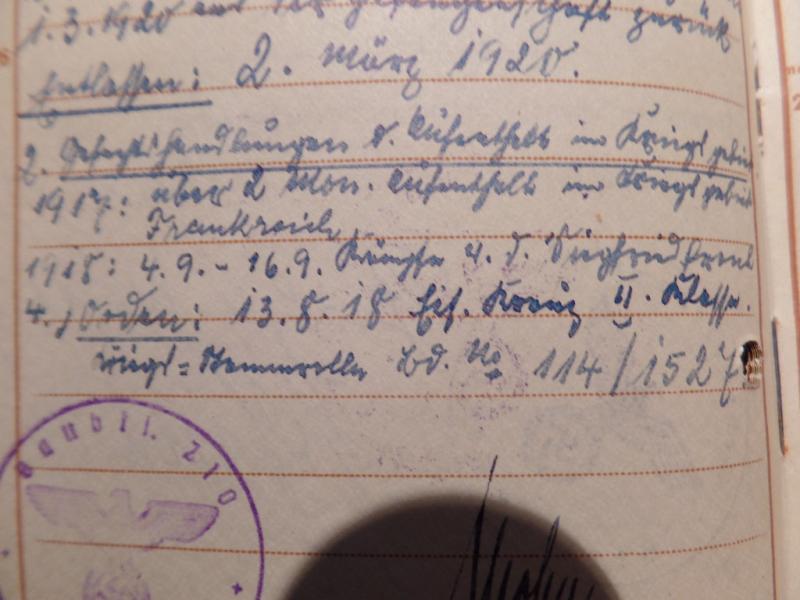 1.3.1920 aus der Gefangenschaft zurück
Entlassen: 2. März 1920.
2. Gefechtshandlungen u. Aufenthalt im Kriegsgebiet
1917: über 2 Mon. Aufenthalt im Kriegsgebiet
Frankreich
1918: 4.9.-16.9. Kämpfe v. d. Siegfriedfront
4., Orden: 13.8.18 Eis. Kreuz II. Klasse.
Kriegs=Stammrolle Bd. No 114/1527
210